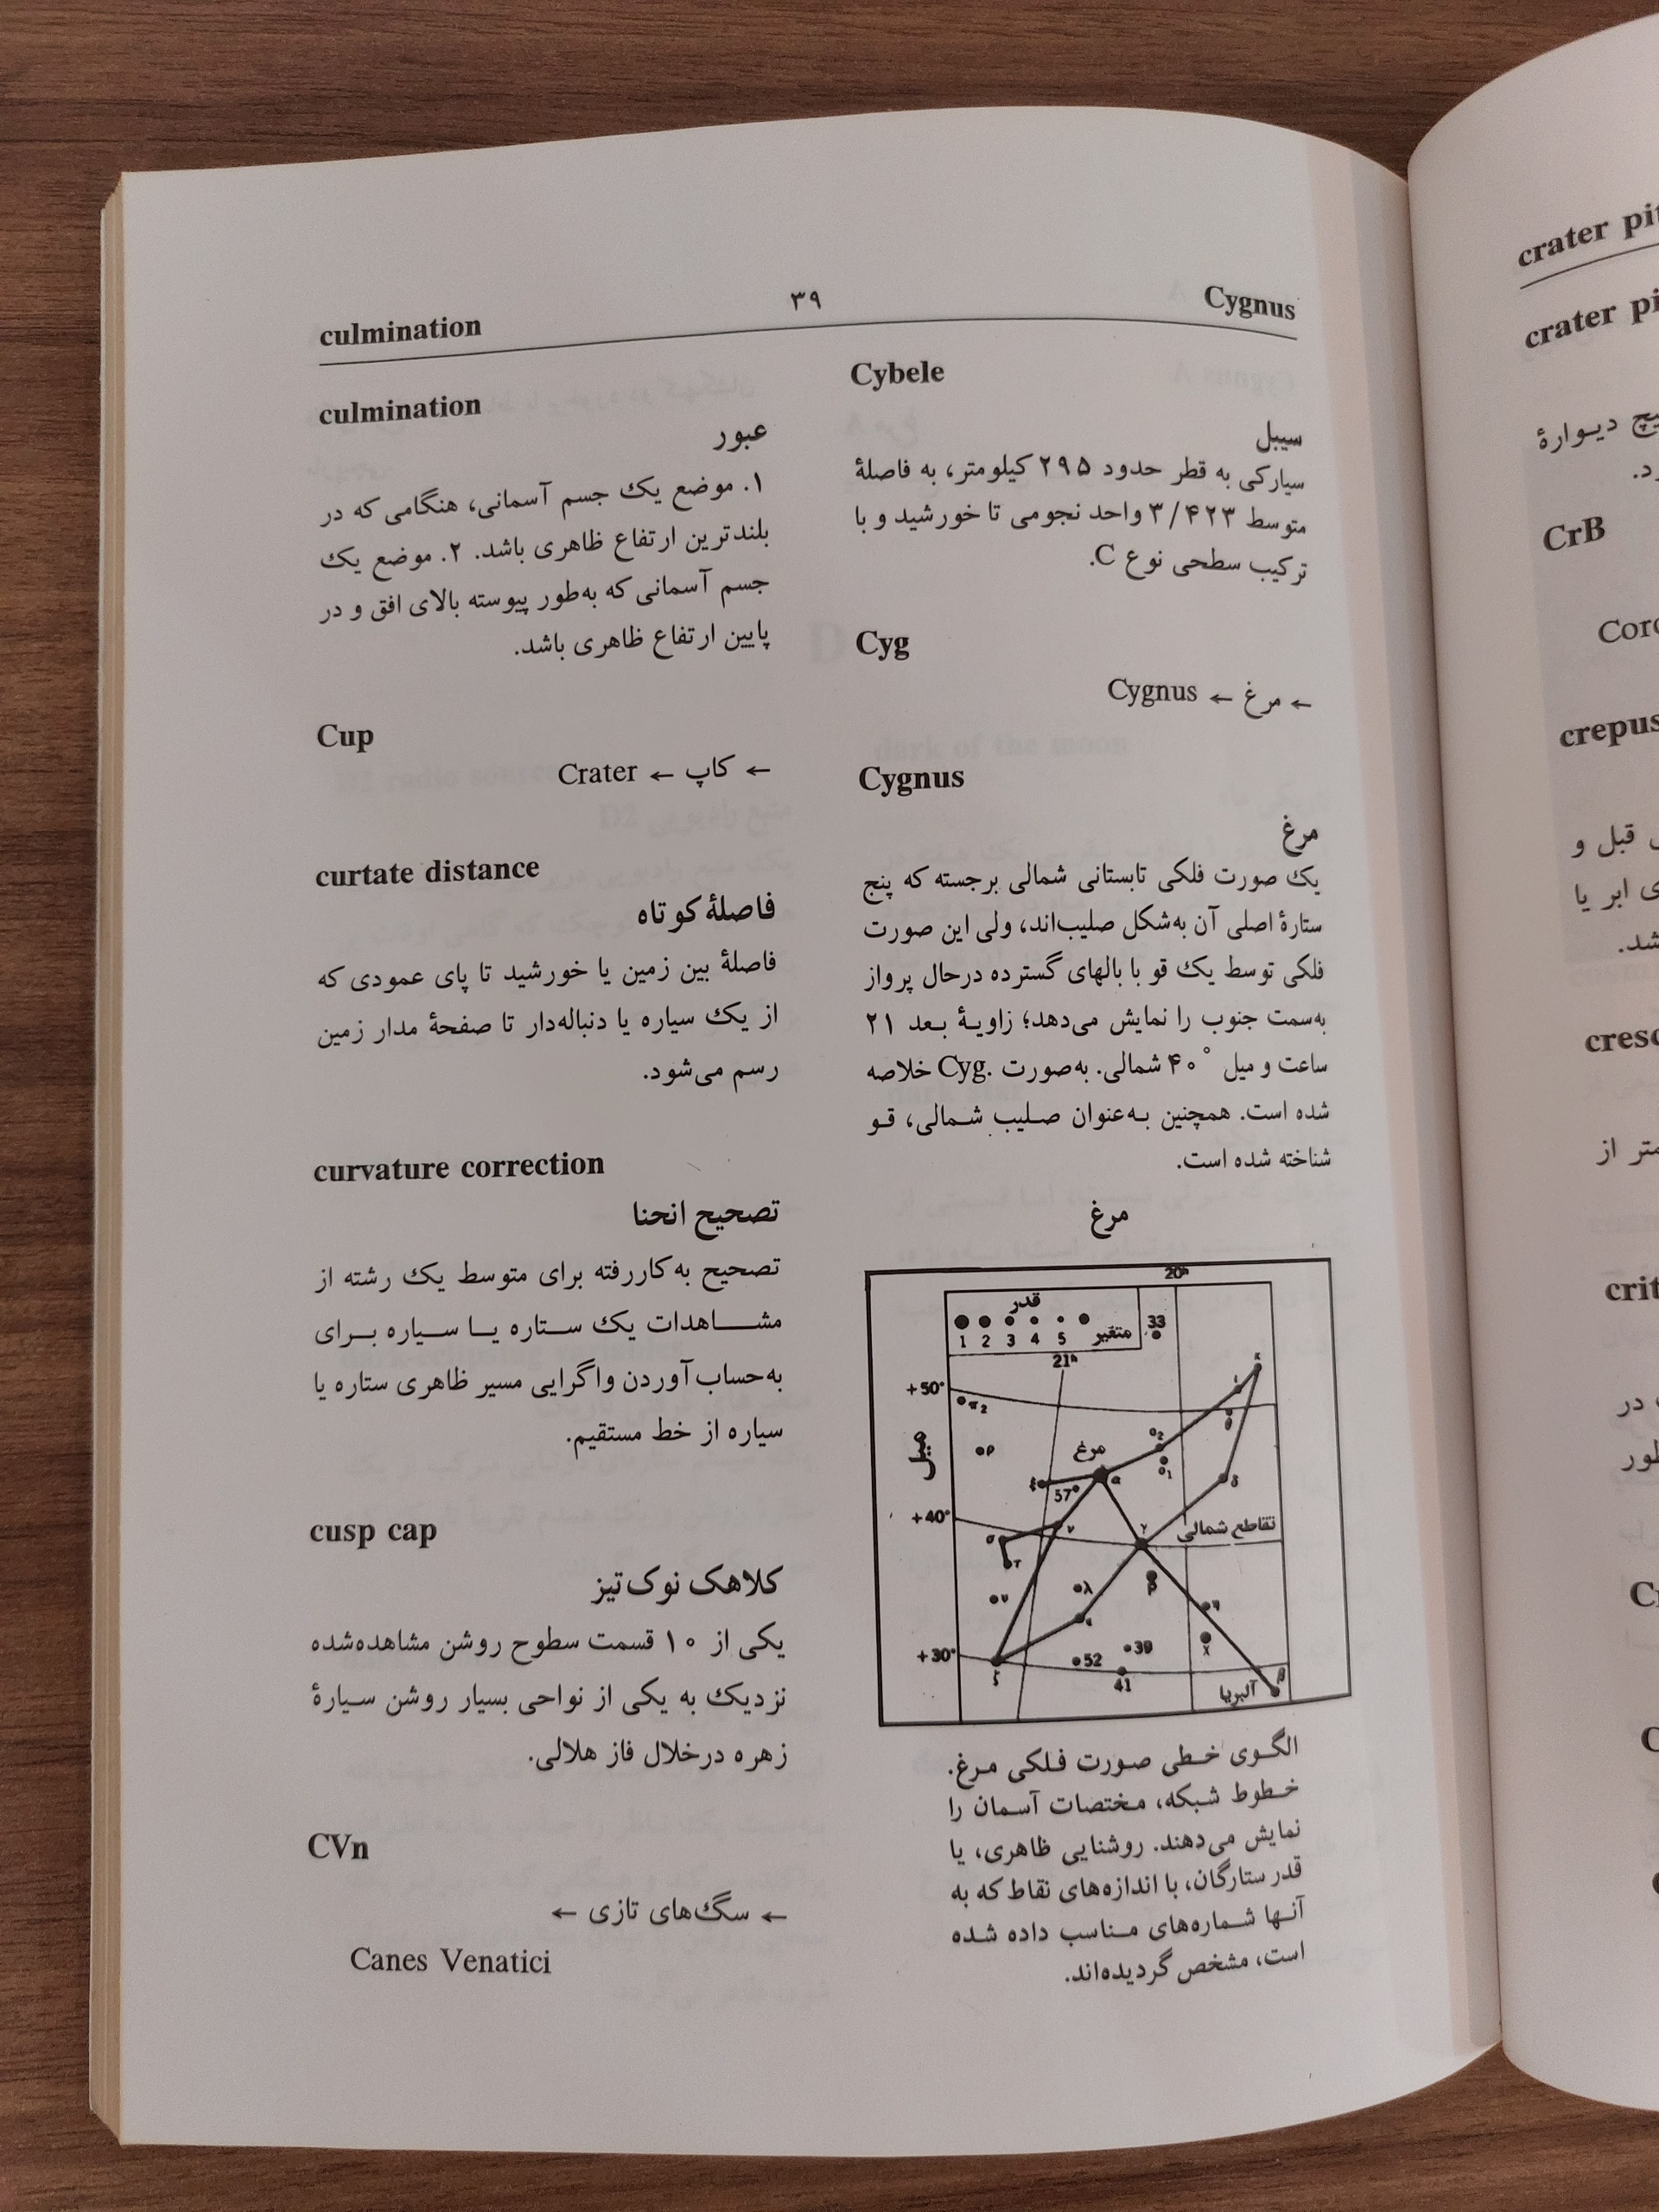 culmination
۳۹
Cygnus
culmination
عبور
۱. موضع یک جسم آسمانی، هنگامی که در
بلندترین ارتفاع ظاهری باشد. ۲. موضع یک
جسم آسمانی که به‌طور پیوسته بالای افق و در
پایین ارتفاع ظاهری باشد.
Cup
← کاپ ← Crater
curtate distance
فاصلهٔ کوتاه
فاصلهٔ بین زمین یا خورشید تا پای عمودی که
از یک سیاره یا دنباله‌دار تا صفحهٔ مدار زمین
رسم می‌شود.
curvature correction
تصحیح انحنا
تصحیح به‌کاررفته برای متوسط یک رشته از
مشاهدات یک ستاره یا سیاره برای
به‌حساب آوردن واگرایی مسیر ظاهری ستاره یا
سیاره از خط مستقیم.
cusp cap
کلاهک نوک‌تیز
یکی از ۱۰ قسمت سطوح روشن مشاهده‌شده
نزدیک به یکی از نواحی بسیار روشن سیارهٔ
زهره درخلال فاز هلالی.
CVn
← سگ‌های تازی ←
Canes Venatici
Cybele
سیبل
سیارکی به قطر حدود ۲۹۵ کیلومتر، به فاصلهٔ
متوسط ۳/۴۲۳ واحد نجومی تا خورشید و با
ترکیب سطحی نوع C.
Cyg
← مرغ ← Cygnus
Cygnus
مرغ
یک صورت فلکی تابستانی شمالی برجسته که پنج
ستارهٔ اصلی آن به‌شکل صلیب‌اند، ولی این صورت
فلکی توسط یک قو با بالهای گسترده درحال پرواز
به‌سمت جنوب را نمایش می‌دهد؛ زاویهٔ بعد ۲۱
ساعت و میل ۴۰° شمالی. به‌صورت Cyg. خلاصه
شده است. همچنین به‌عنوان صلیب شمالی، قو
شناخته شده است.
مرغ
20h
قدر
متغیر
1 2 3 4 5
33
21h
κ
ι
θ
+50°
π2
ο2
ο1
ρ
میل
مرغ
ξ
α
57
δ
+40°
ν
σ
τ
γ
تقاطع شمالی
υ
λ
P
η
ε
39
χ
+30°
52
41
ζ
آلبریا
β
الگوی خطی صورت فلکی مرغ.
خطوط شبکه، مختصات آسمان را
نمایش می‌دهند. روشنایی ظاهری، یا
قدر ستارگان، با اندازه‌های نقاط که به
آنها شماره‌های مناسب داده شده
است، مشخص گردیده‌اند.
crater
crater
دیوارهٔ
CrB
قبل و
ابر یا
شد.
متر از
در